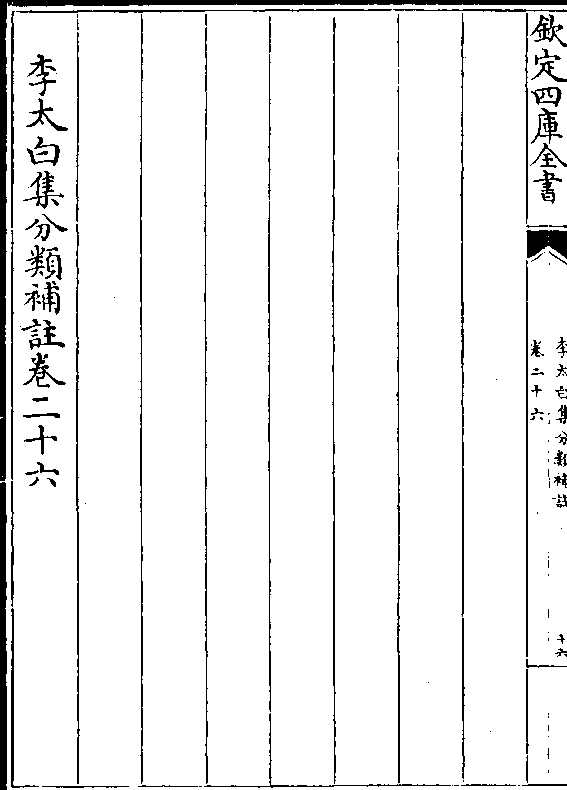 欽定四庫全書
李太白集分類補註
卷二十六
十六
李太白集分類補註卷二十六